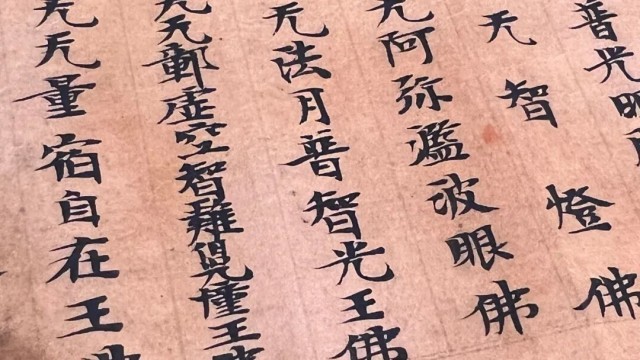 普光明
无智燈佛
无阿弥濫波眼佛
无法月普智光王佛
无无鄣虚空智雞兜幢王
无无量宿自在王